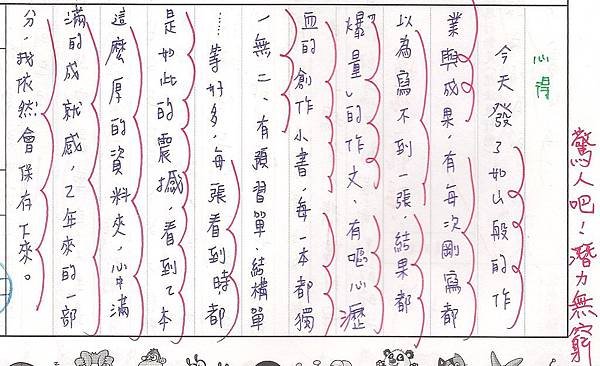 驚人吧!潛力無窮
心得
今天發了如山般的作
業與成果,有每次剛寫都
以為寫不到一張,結果都
「爆量」的作文、有嘔心瀝
血的創作小書,每一本都獨
一無二、有預習單、結構單
……等好多,每張看到時,都
是如此的震撼,看到2本
這麼厚的資料夾,心中滿
滿的成就感,2年來的一部
分,我依然會保存下來。